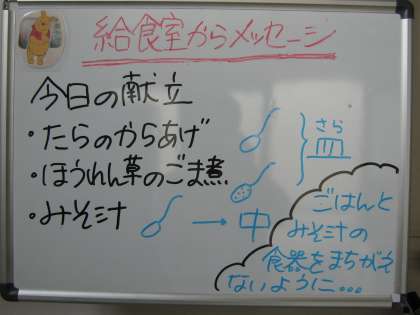 給食室からメッセージ
今日の献立
・たらのからあげ
・ほうれん草のごま煮
さら
皿
・みそ汁 → 中
ごはんと
みそ汁の
食器をまちがえ
ないように…